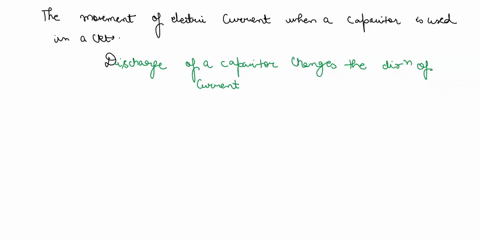 The movement of electric current when a capacitor is used
in a ckts.
Discharge of a capacitor changes the dirⁿ of
current